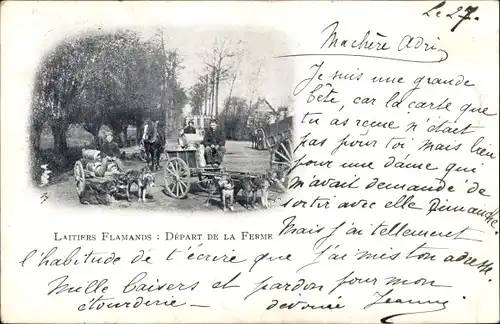 Le 27.
Machère Adri
Je suis une grande
bête, car la carte que
tu as reçue n'était
pas pour toi mais bien
pour une dame qui
m'avait demandé de
sortir avec elle Dimanche
Mais j'ai tellement
l'habitude de t'écrire que j'ai mis ton adresse.
Mille baisers et pardon pour mon
étourderie - dévouée Jeanne
LAITIERS FLAMANDS : DÉPART DE LA FERME